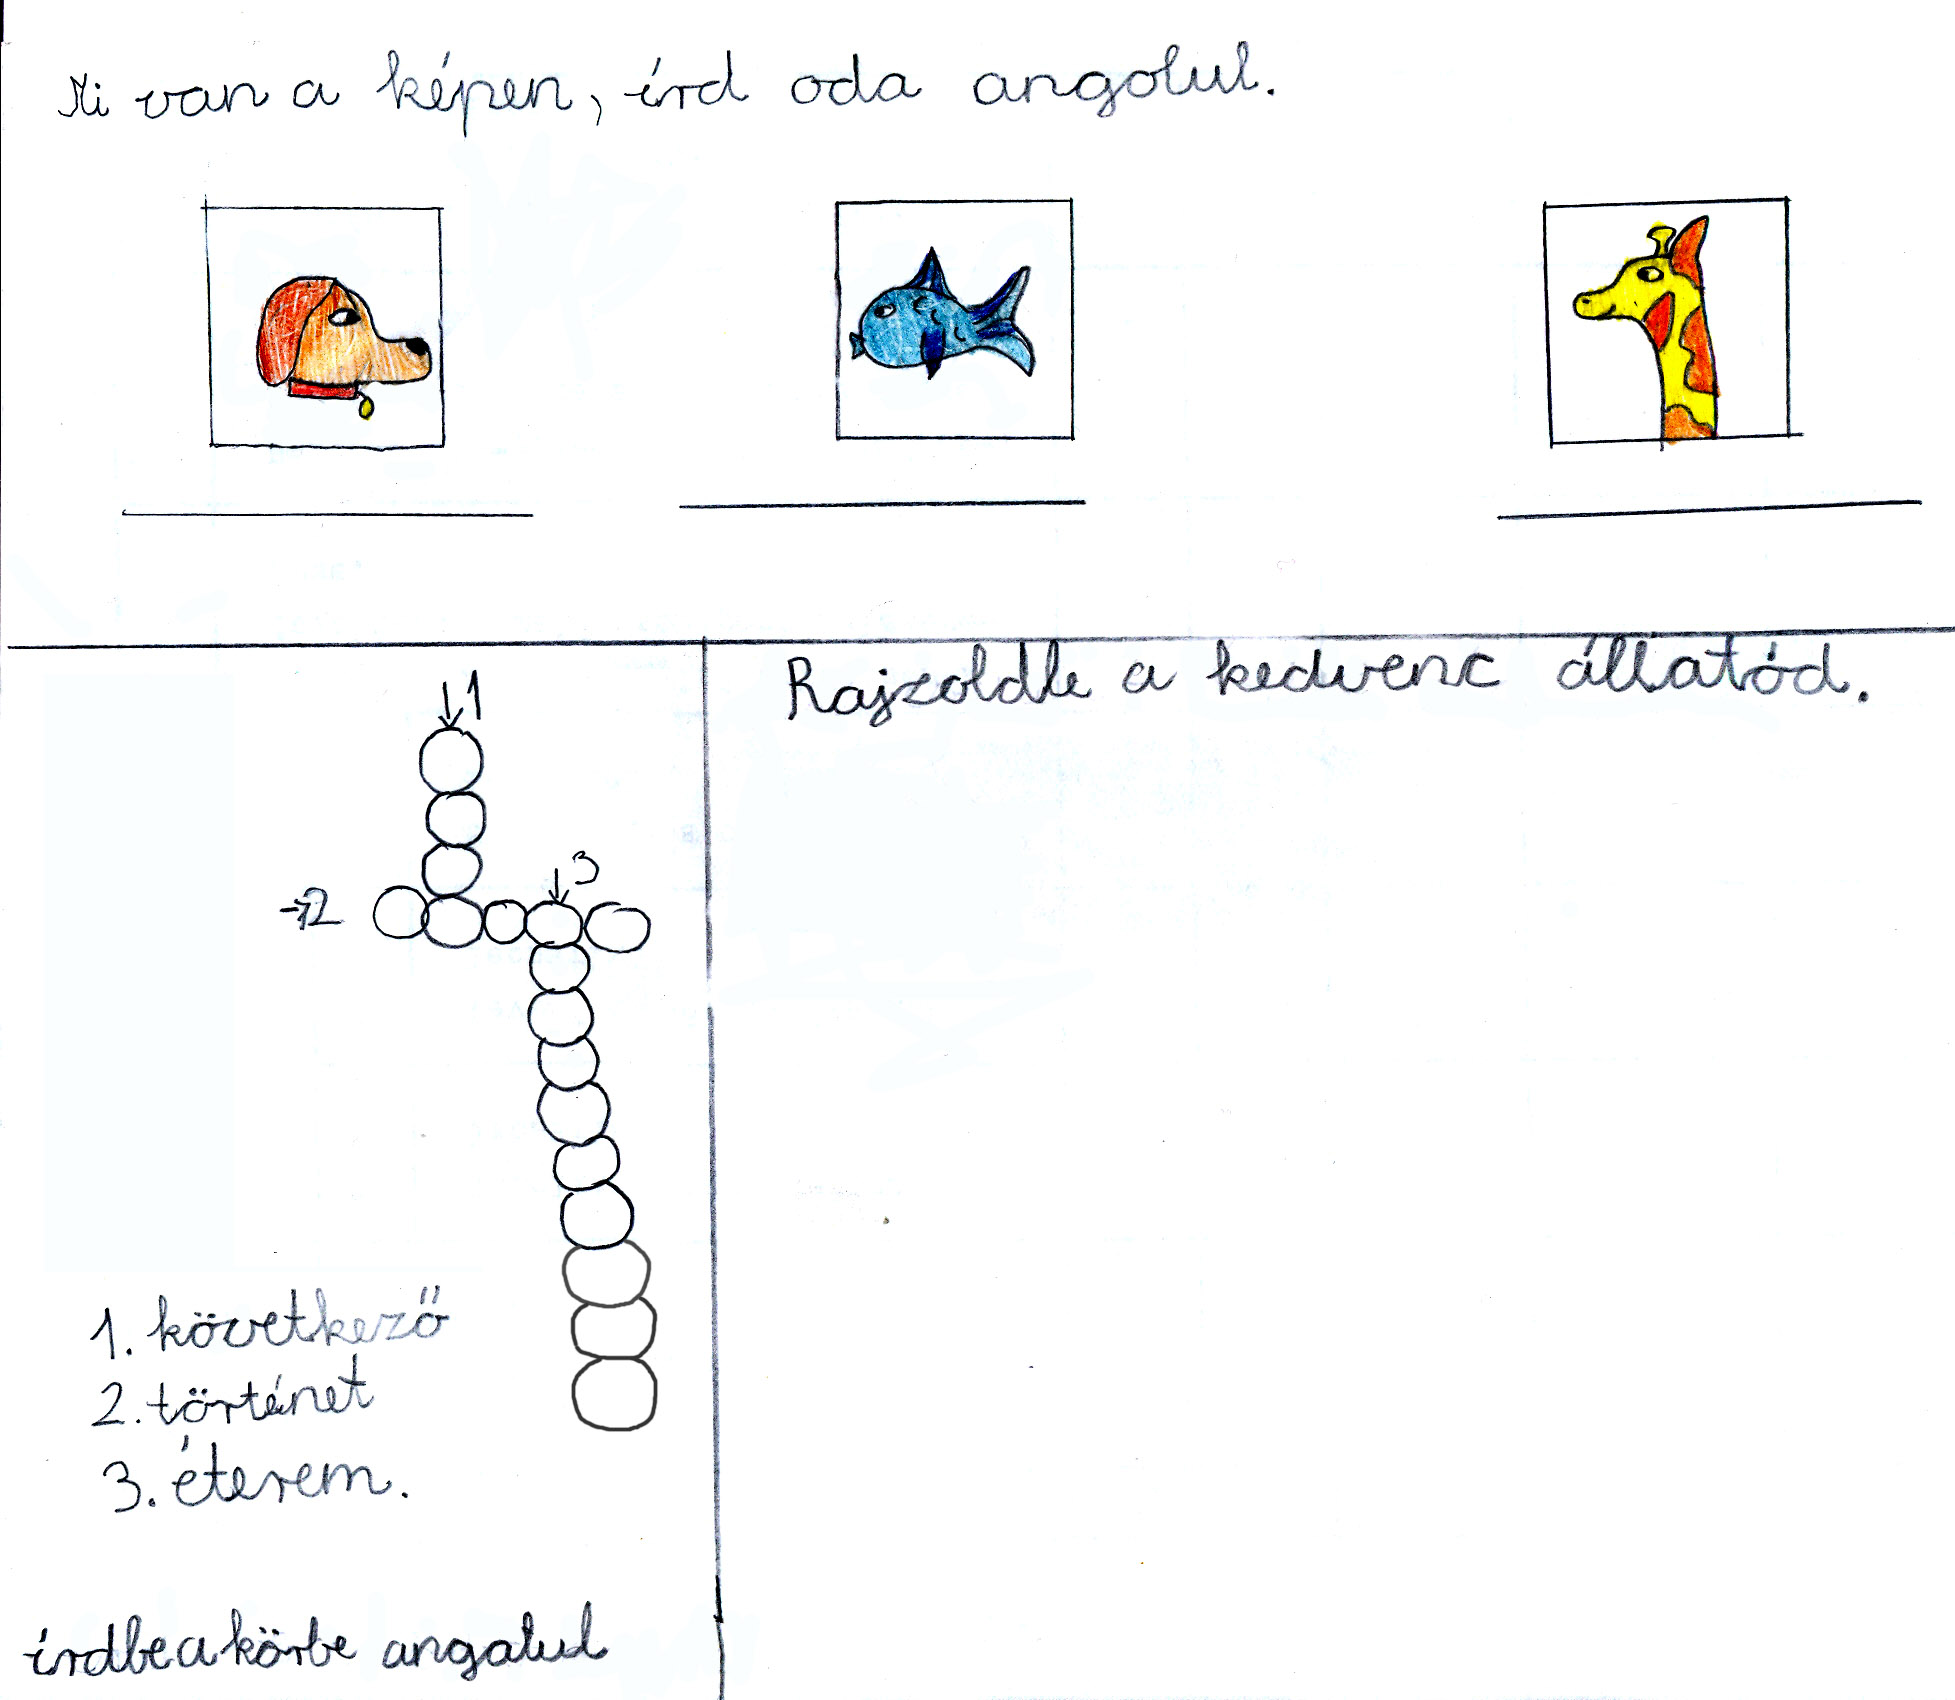 Mi van a képen, írd oda angolul.
↓1
Rajzoldle a kedvenc állatód.
↓3
→2
1. következő
2. történet
3. éterem.
írdbe a körbe angatul